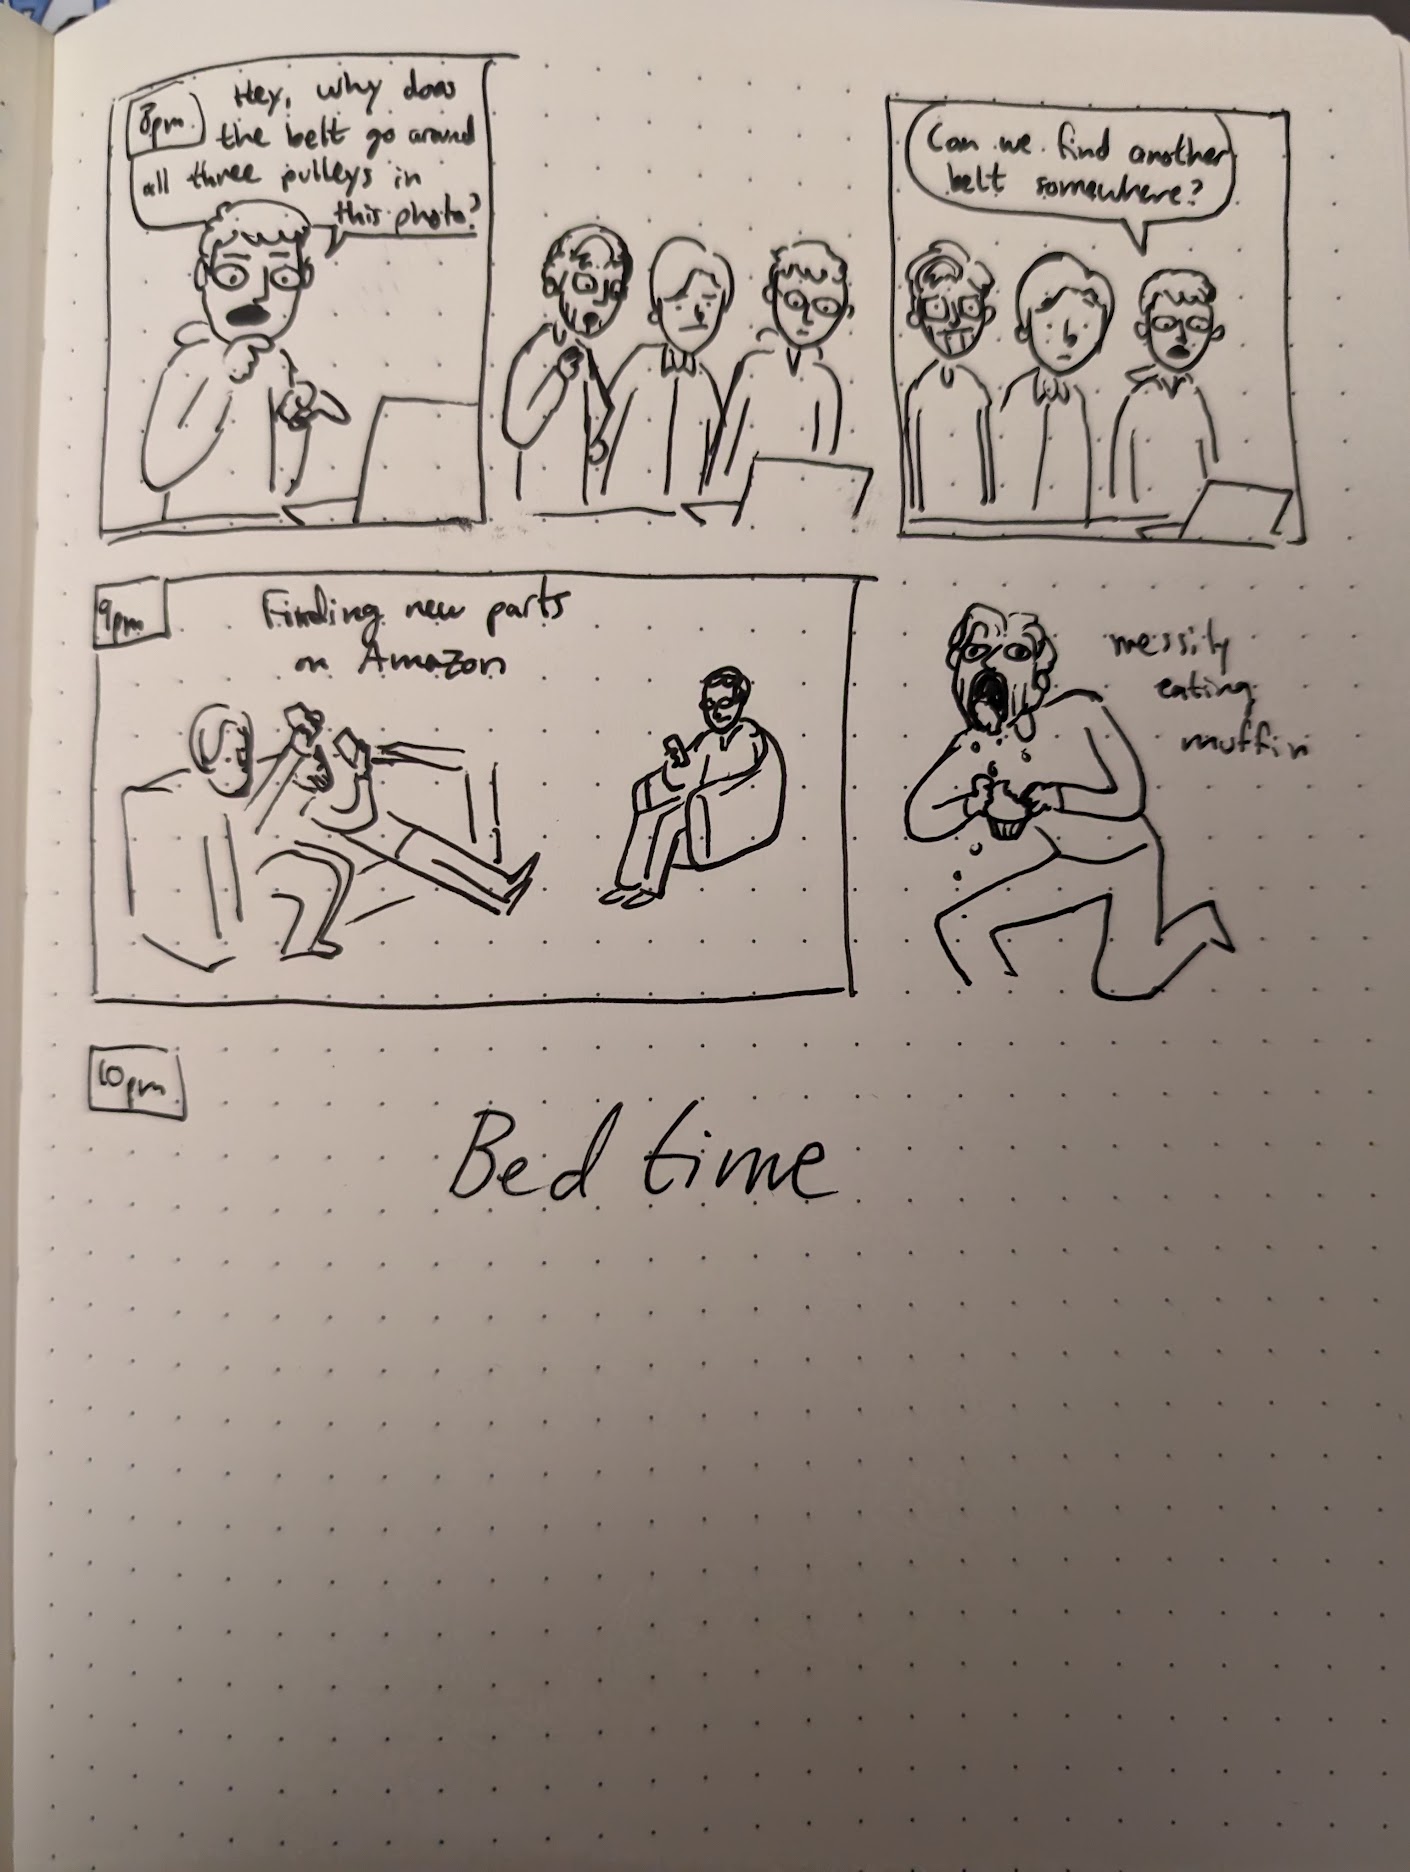 8pm
Hey, why does
the belt go around
all three pulleys in
this photo?
Can we find another
belt somewhere?
9pm
Finding new parts
on Amazon
messily
eating
muffin
10pm
Bed time